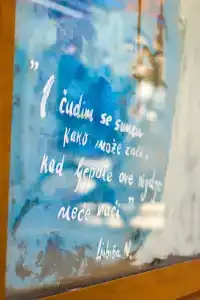 „I čudim se suncu
kako može zaći,
kad ljepote ove nigdje
neće naći”
Ljubiša N.